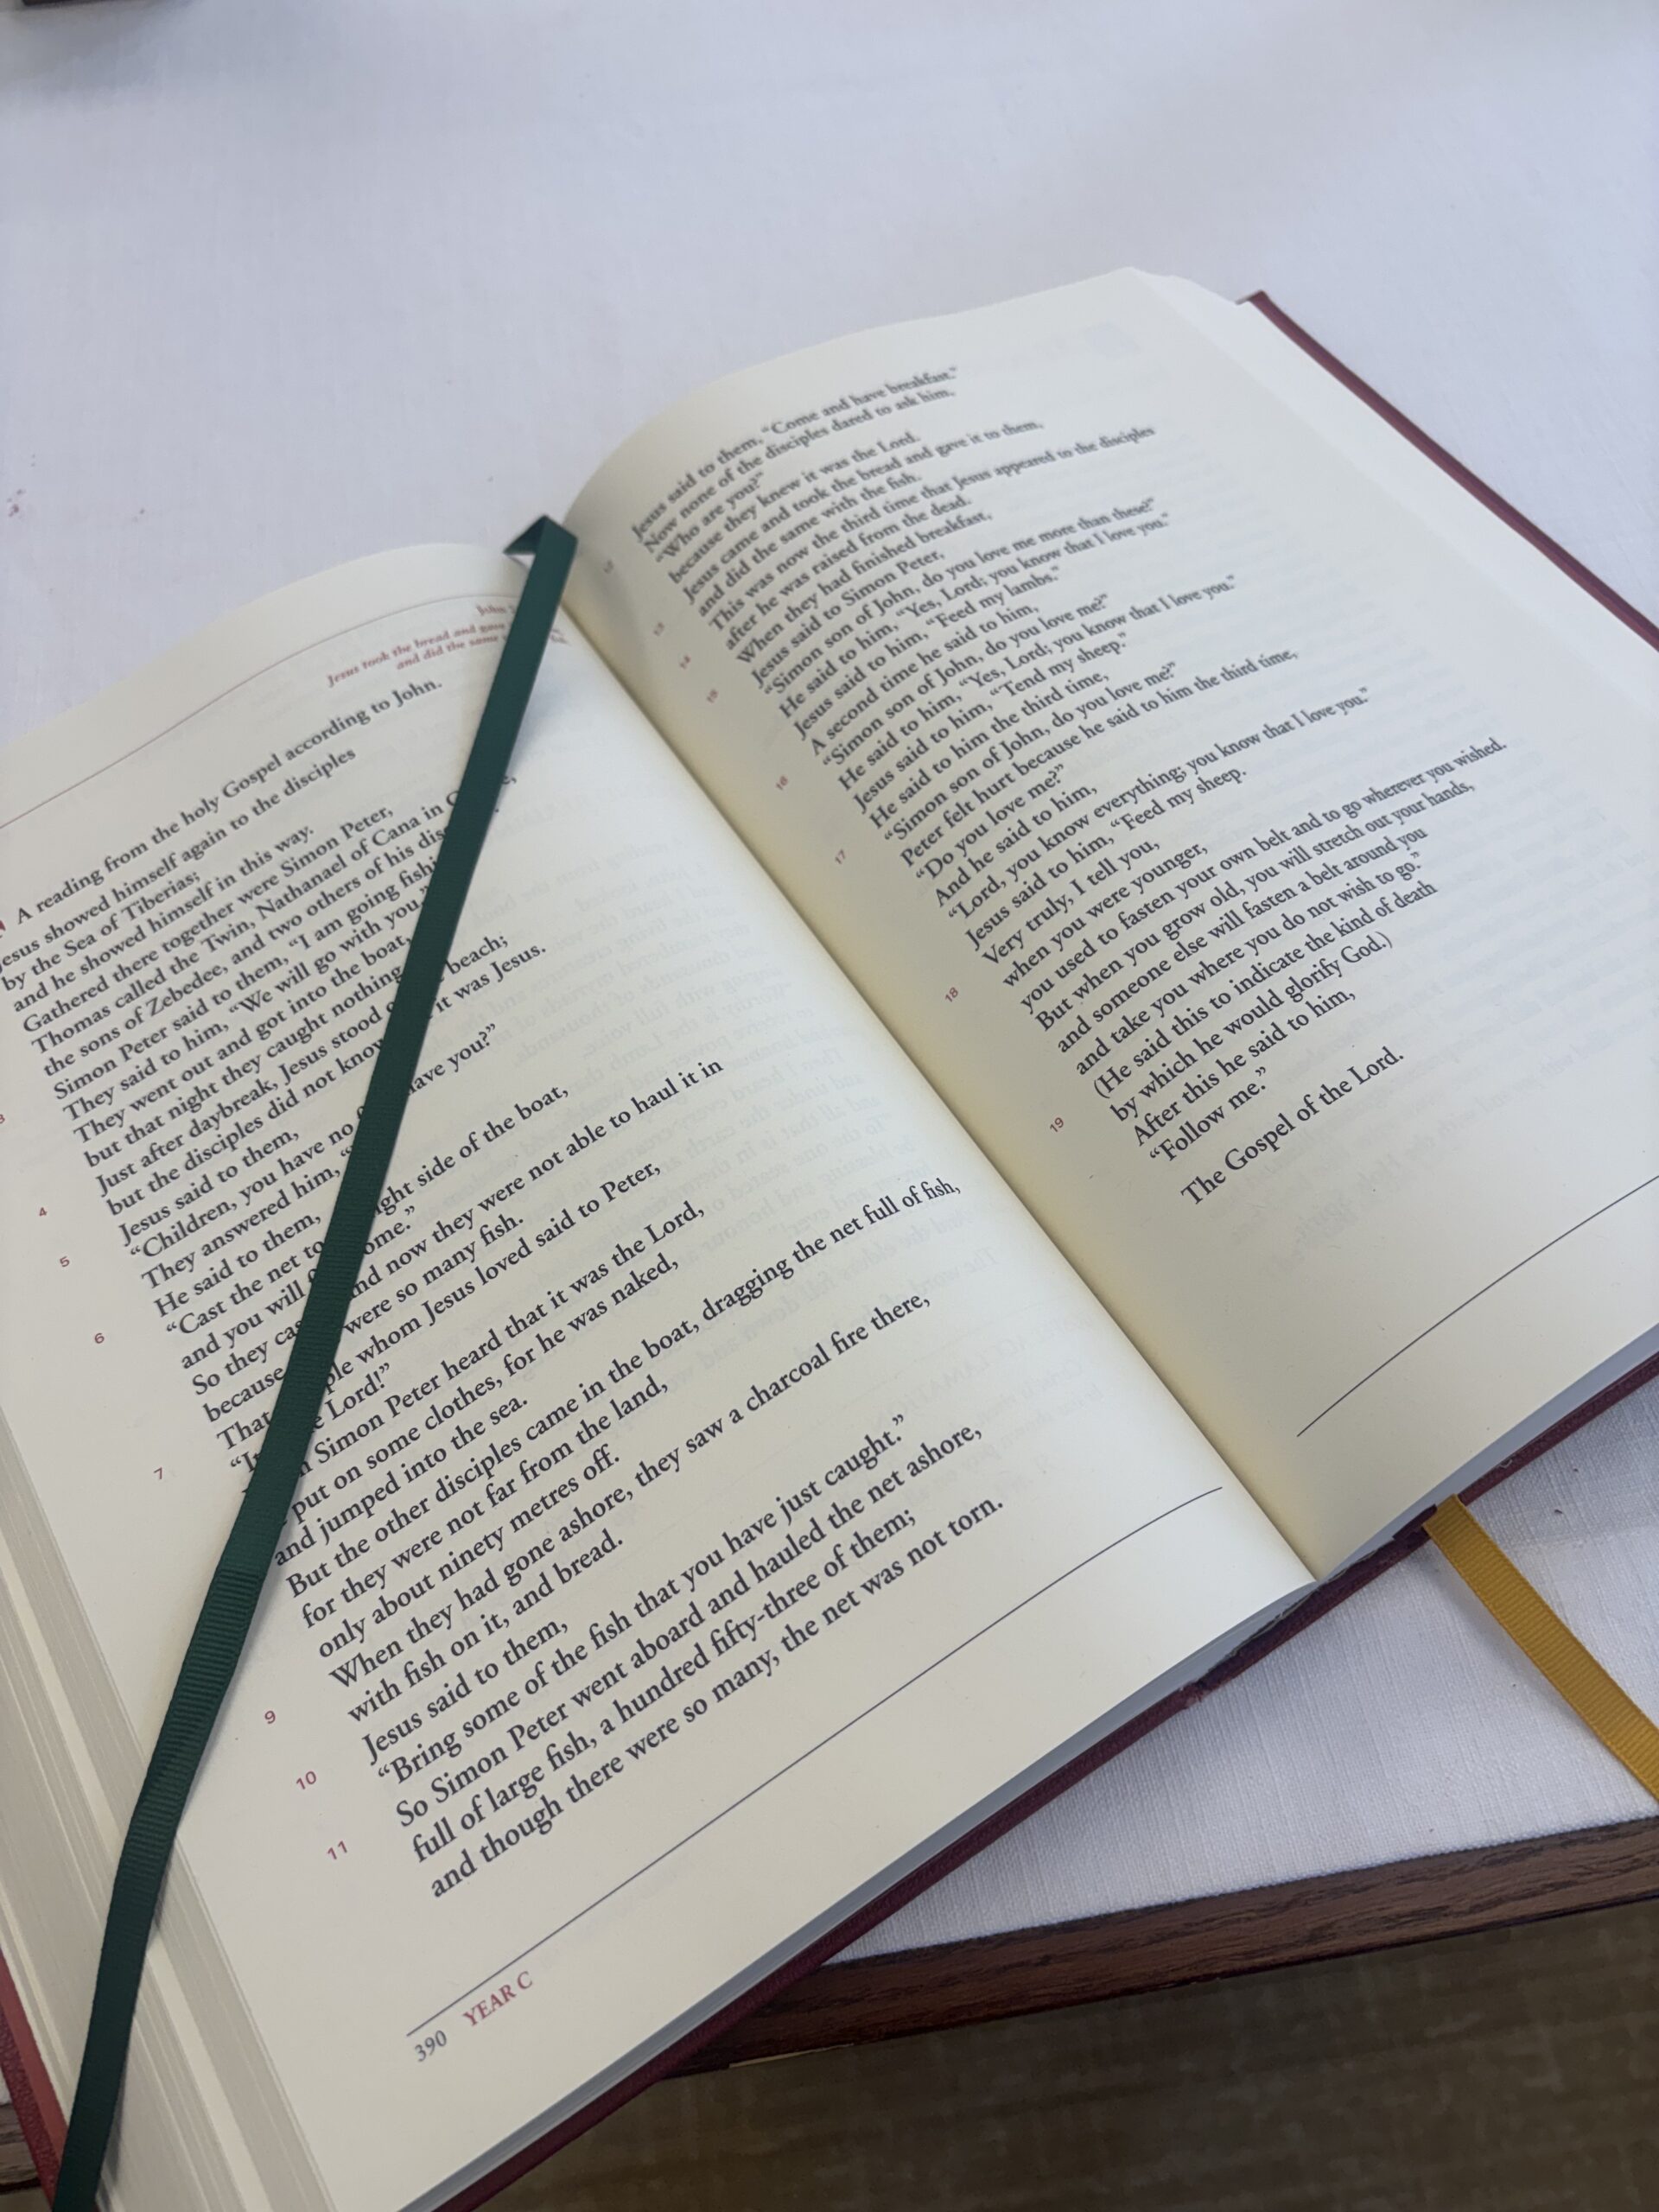 John
Jesus took the bread and gave
and did the same
A reading from the holy Gospel according to John.
Jesus showed himself again to the disciples
by the Sea of Tiberias;
and he showed himself in this way.
Gathered there together were Simon Peter,
Thomas called the Twin, Nathanael of Cana in
the sons of Zebedee, and two others of his
3 Simon Peter said to them, “I am going
They said to him, “We will go with you.”
They went out and got into the boat,
but that night they caught nothing
4 Just after daybreak, Jesus stood beach;
but the disciples did not know it was Jesus.
5 Jesus said to them,
“Children, you have no have you?”
They answered him,
6 He said to them,
“Cast the net to side of the boat,
and you will
So they and now they were not able to haul it in
because were so many fish.
7 That whom Jesus loved said to Peter,
Lord!”
Simon Peter heard that it was the Lord,
put on some clothes, for he was naked,
and jumped into the sea.
But the other disciples came in the boat, dragging the net full of fish,
for they were not far from the land,
only about ninety metres off.
9 When they had gone ashore, they saw a charcoal fire there,
with fish on it, and bread.
10 Jesus said to them,
“Bring some of the fish that you have just caught.”
11 So Simon Peter went aboard and hauled the net ashore,
full of large fish, a hundred fifty-three of them;
and though there were so many, the net was not torn.
390 YEAR C
12 Jesus said to them, “Come and have breakfast.”
Now none of the disciples dared to ask him,
“Who are you?”
because they knew it was the Lord.
13 Jesus came and took the bread and gave it to them,
and did the same with the fish.
14 This was now the third time that Jesus appeared to the disciples
after he was raised from the dead.
15 When they had finished breakfast,
Jesus said to Simon Peter,
“Simon son of John, do you love me more than these?”
He said to him, “Yes, Lord; you know that I love you.”
Jesus said to him, “Feed my lambs.”
16 A second time he said to him,
“Simon son of John, do you love me?”
He said to him, “Yes, Lord; you know that I love you.”
Jesus said to him, “Tend my sheep.”
17 He said to him the third time,
“Simon son of John, do you love me?”
Peter felt hurt because he said to him the third time,
“Do you love me?”
And he said to him,
“Lord, you know everything; you know that I love you.”
Jesus said to him, “Feed my sheep.
18 Very truly, I tell you,
when you were younger,
you used to fasten your own belt and to go wherever you wished.
But when you grow old, you will stretch out your hands,
and someone else will fasten a belt around you
and take you where you do not wish to go.”
19 (He said this to indicate the kind of death
by which he would glorify God.)
After this he said to him,
“Follow me.”
The Gospel of the Lord.